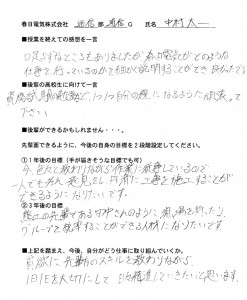 春日電気株式会社 通信 部 通信 G 氏名 中村 太一
■授業を終えての感想を一言
口足らずなところもありましたが、春日電気がどのような
仕事を行っているのかを細かく説明することができ良かったです
■後輩の高校生に向けて一言
つ1つ自分の糧になるように頑張って
下さい。
■後輩ができるかもしれません・・・。
先輩面できるように、今後の自身の目標を2段階設定してください。
①1年後の目標(手が届きそうな目標でも可)
今、色々と教わりながら作業に従事しているので
一人でも 円滑に工事を施工することが
できるようになりたいです。
②3年後の目標
先輩である さんのように 現場を
グループを することができる人材になりたいです。
■上記を踏まえ、今後、自分がどう仕事に取り組んでいくか。
貪欲に先輩のスキルを教わりながら
1日1日を大切にして 日々精進していきたいと思います。